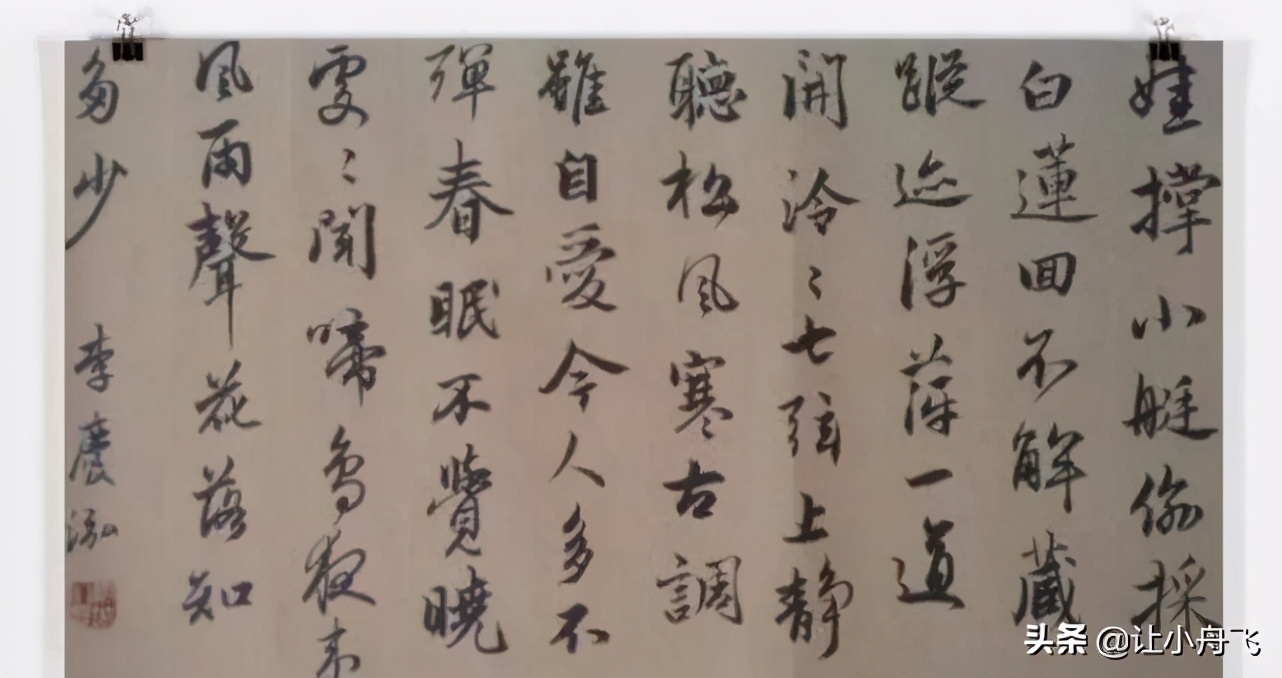 娃撑小艇偷採
白蓮回不解藏
蹤迹浮萍一道
開泠〻七弦上静
聽松風寒古調
雖自愛今人多不
彈春眠不覺曉
處〻聞啼鳥夜来
風雨聲花落知
多少 李慶泓
头条 @让小舟飞